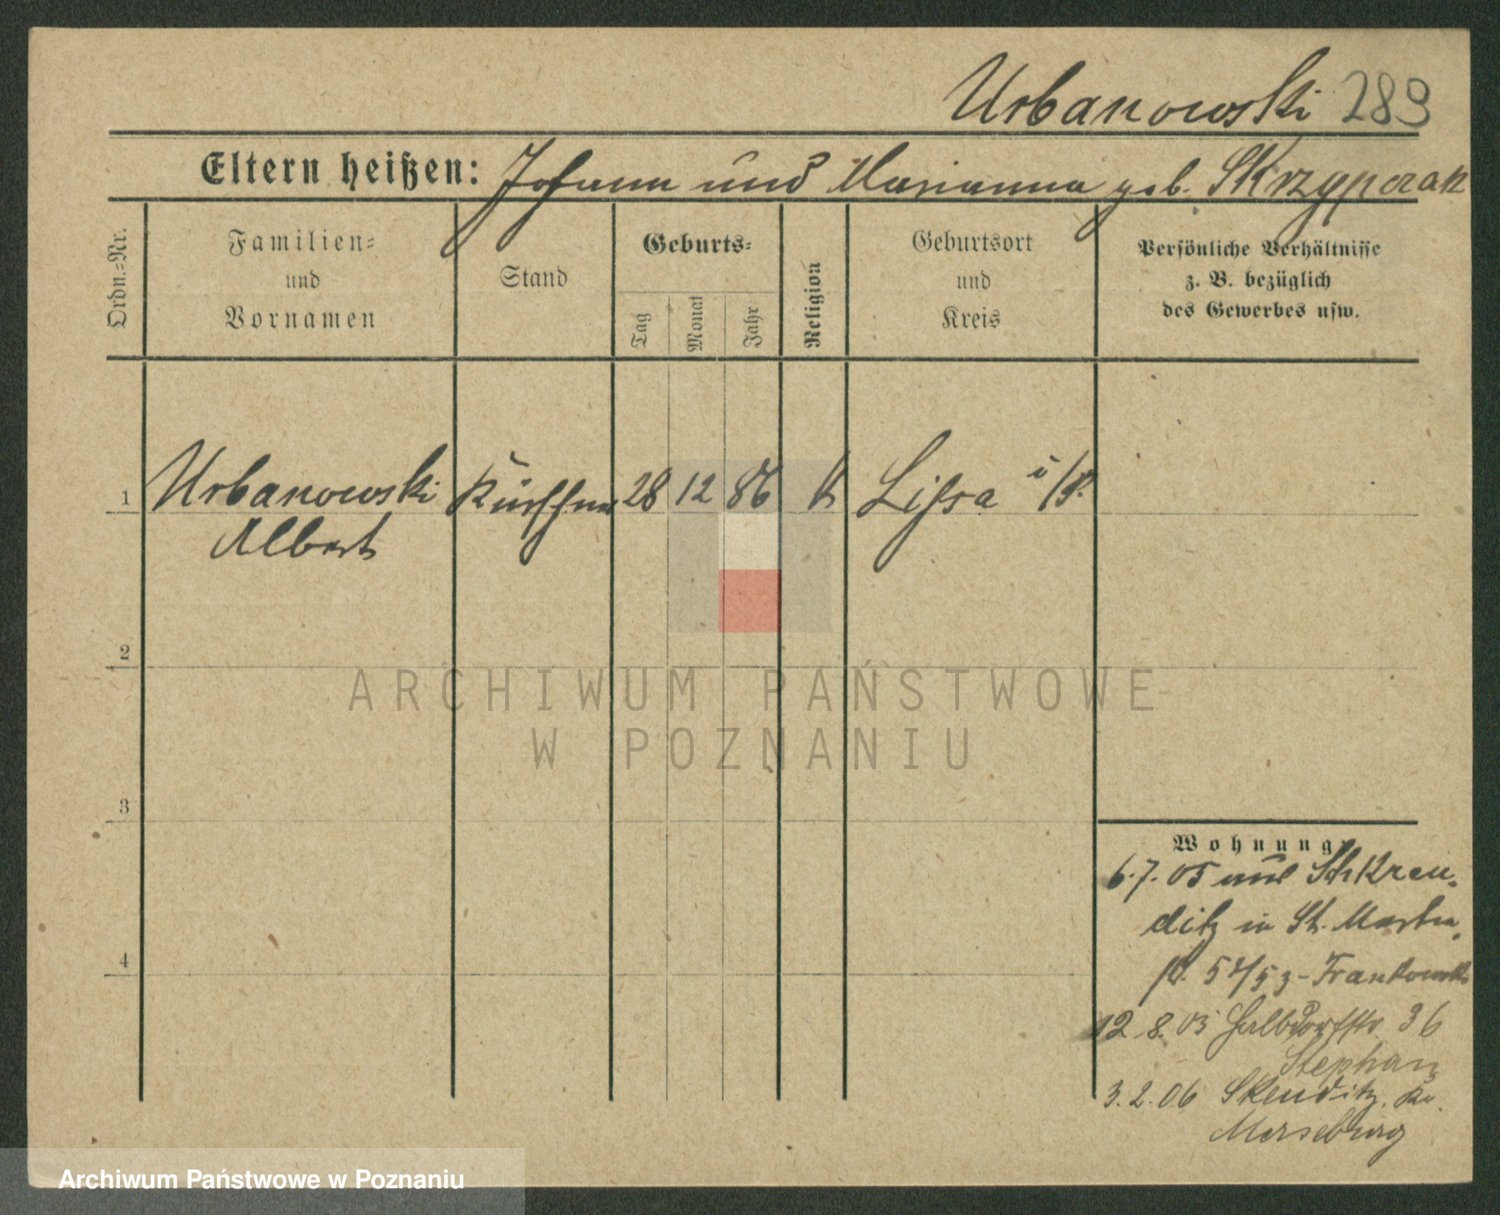 Urbanowski 289
Eltern heißen: Johann und Marianna geb. Skrzypczak
Ordn.-Nr.
Familien-
und
Vornamen
Stand
Geburts-
Tag
Monat
Jahr
Religion
Geburtsort
und
Kreis
Persönliche Verhältnisse
z. B. bezüglich
des Gewerbes usw.
1 Urbanowski Kürschner 28 12 86 k Lissa i/P.
Albert
2
3
4
Wohnung
6.7.05 aus Schkeu-
ditz in St. Martin
52/53 - Frankowski
12 8. 05 Halbdorfstr. 36
Stephan
3.2.06 Skeuditz, Kr.
Merseburg
ARCHIWUM PAŃSTWOWE
W POZNANIU
Archiwum Państwowe w Poznaniu